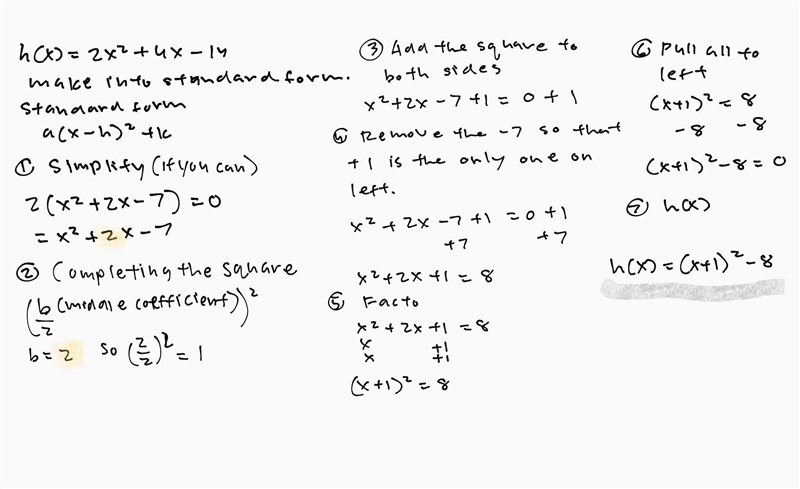 h(x) = 2x² + 4x - 14
make into standard form.
standard form
a(x-h)² + k
① Simplify (if you can)
2(x² + 2x - 7) = 0
= x² + 2x - 7
② Completing the square
(b/2 (middle coefficient))²
b = 2 so (2/2)² = 1
③ Add the square to
both sides
x² + 2x - 7 + 1 = 0 + 1
④ Remove the -7 so that
+1 is the only one on
left.
x² + 2x - 7 + 1 = 0 + 1
+7 +7
x² + 2x + 1 = 8
⑤ Facto
x² + 2x + 1 = 8
x +1
x +1
(x+1)² = 8
⑥ Pull all to
left
(x+1)² = 8
-8 -8
(x+1)² - 8 = 0
⑦ h(x)
h(x) = (x+1)² - 8